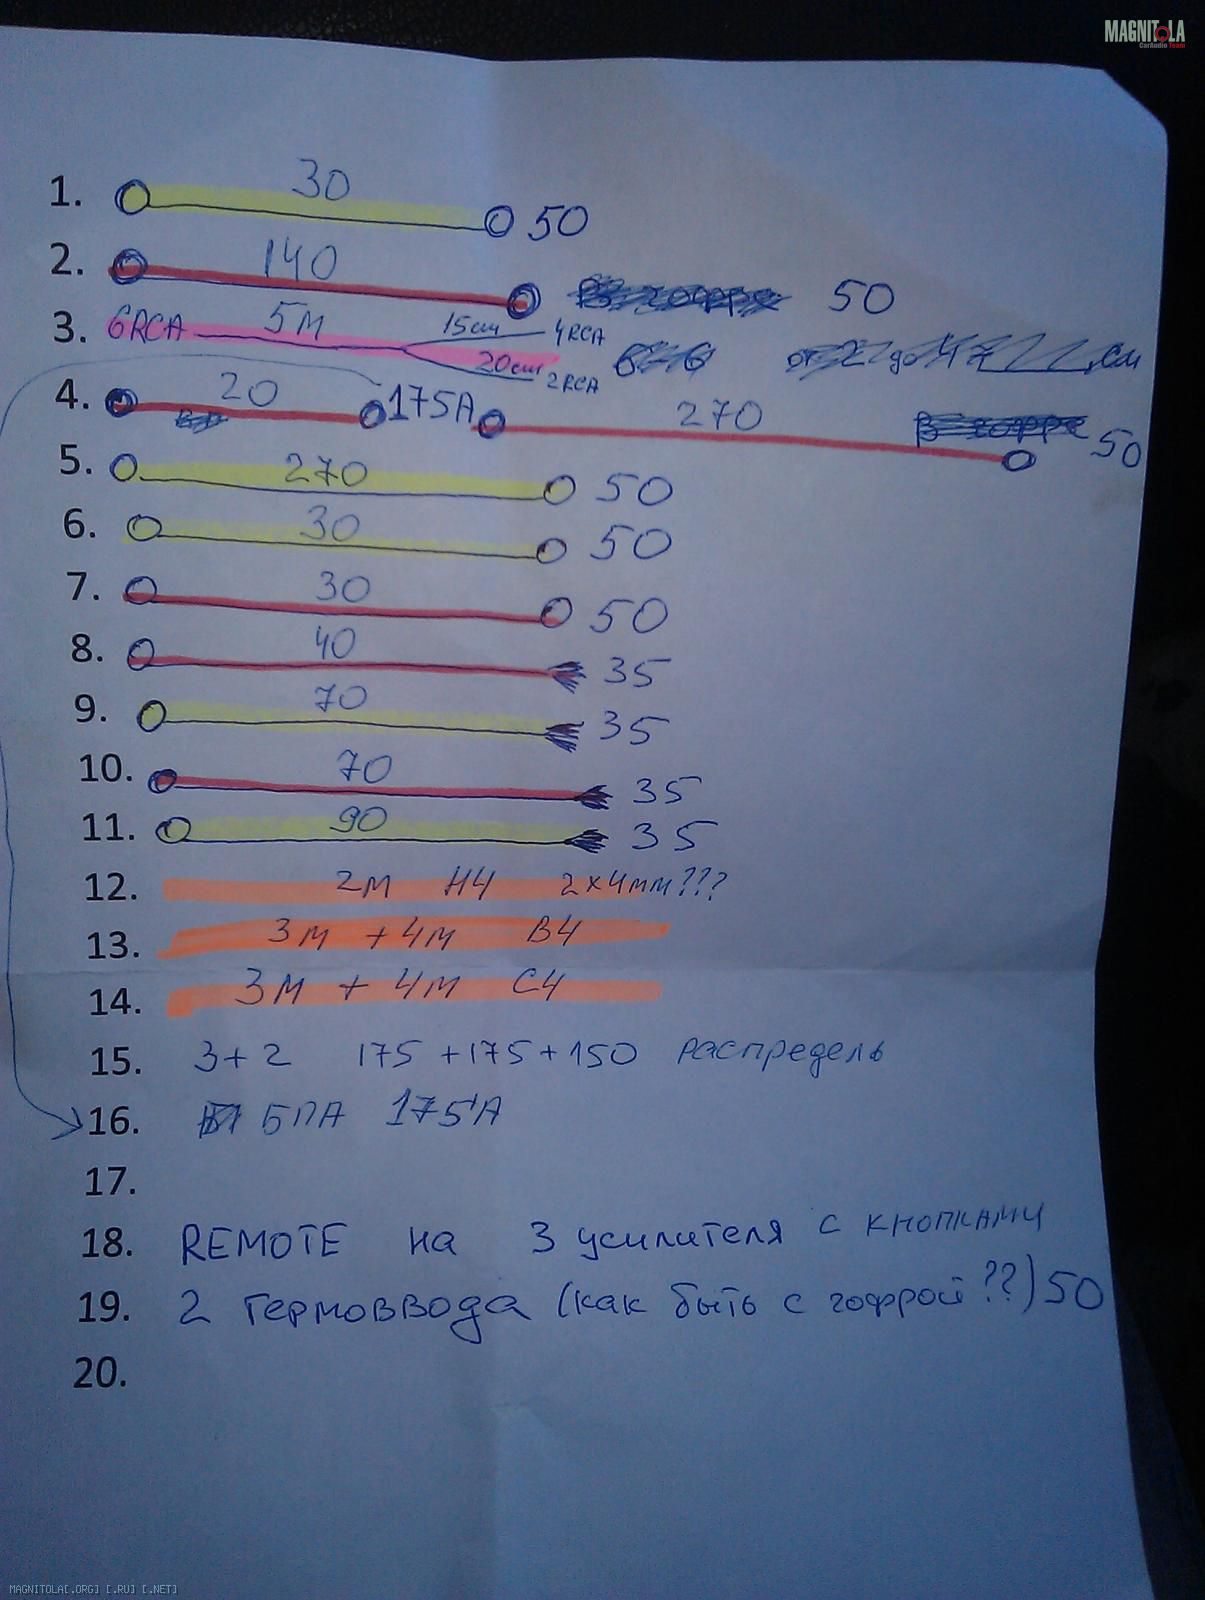 MAGNITOLA
CarAudio Team
1. 30 50
2. 140 50
3. 6RCA 5м 15см 4RCA
20см 2RCA
4. 20 175A 270 50
5. 270 50
6. 30 50
7. 30 50
8. 40 35
9. 70 35
10. 70 35
11. 90 35
12. 2м НЧ 2x4мм???
13. 3м + 4м ВЧ
14. 3м + 4м СЧ
15. 3+2 175+175+150 распредель
16. БПА 175A
17.
18. REMOTE на 3 усилителя с кнопками
19. 2 гермоввода (как быть с гофрой??) 50
20.
MAGNITOLA[.ORG] [.RU] [.NET]